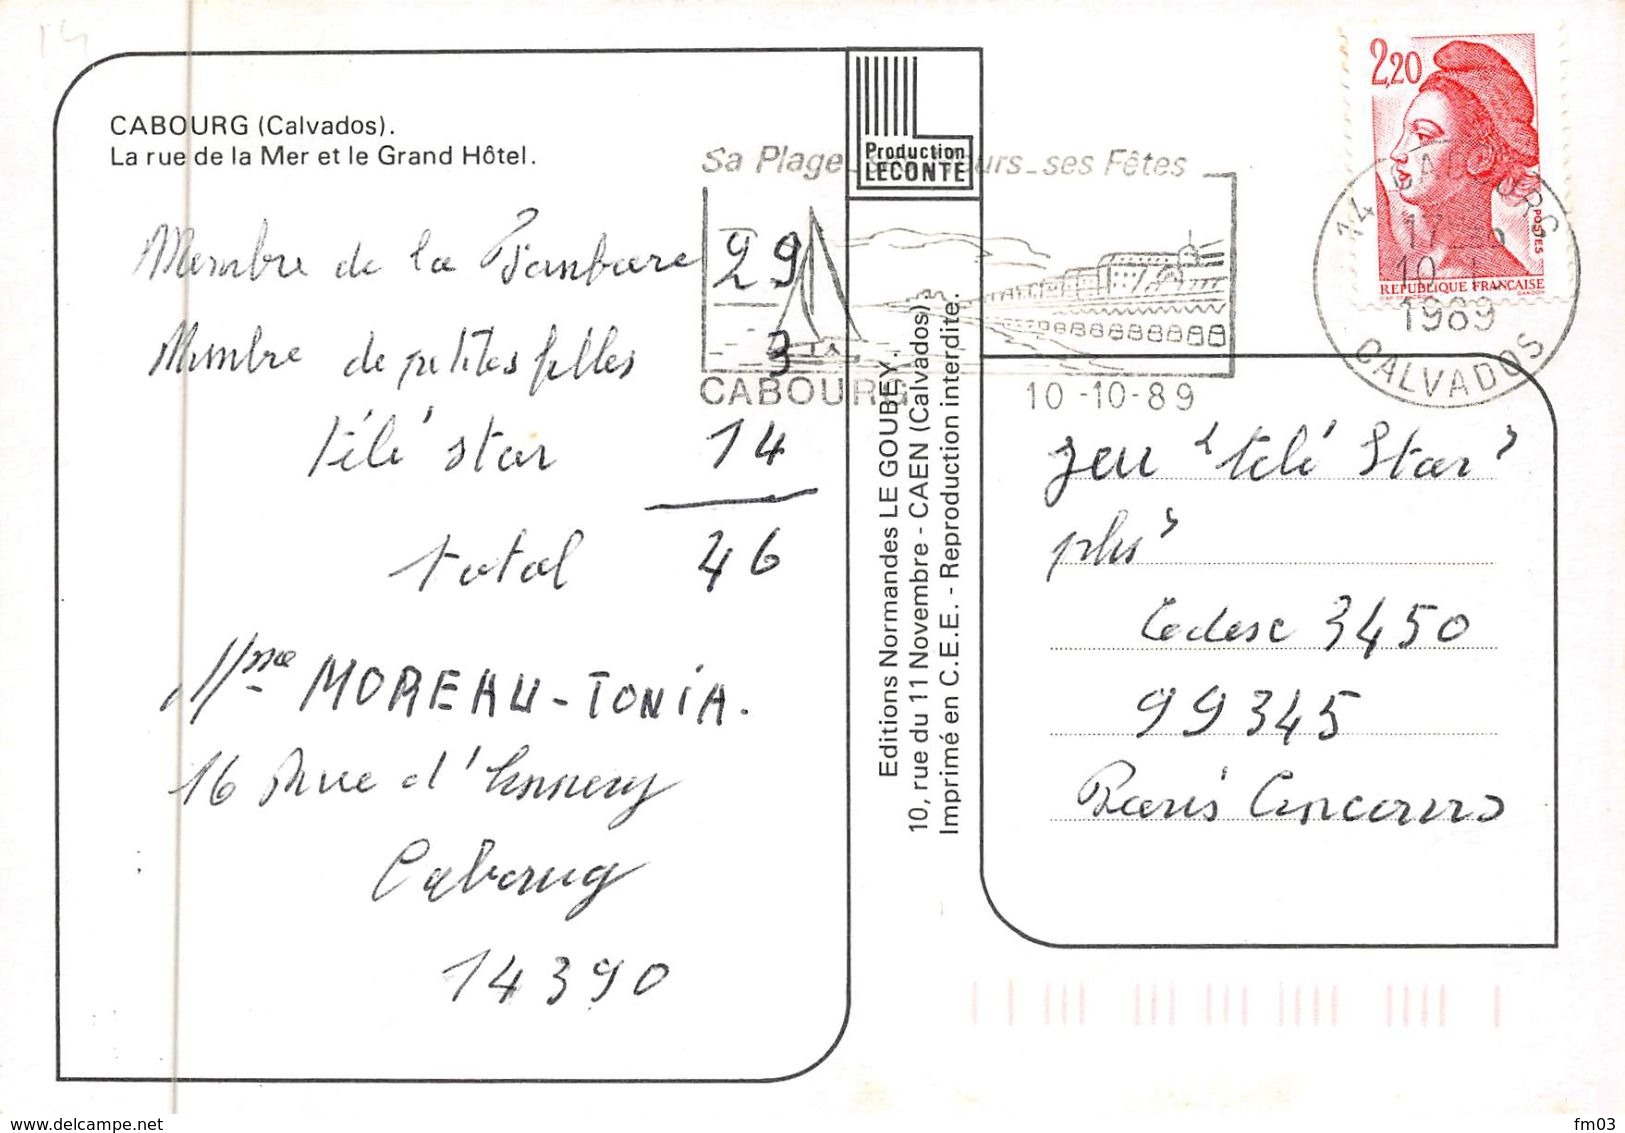 14
CABOURG (Calvados).
La rue de la Mer et le Grand Hôtel.
Membre de la Fanfare 29
Membre de petites filles 3
télé star 14
total 46
Mme MOREAU-TONIA.
16 Rue d'Ennery
Cabourg
14390
Production
LECONTE
Editions Normandes LE GOUBEY.
10, rue du 11 Novembre - CAEN (Calvados).
Imprimé en C.E.E. - Reproduction interdite.
Sa Plage ses Fêtes
CABOURG
10-10-89
2,20
POSTES
REPUBLIQUE FRANÇAISE
14 CABOURG
17
10
1989
CALVADOS
jeu "télé Star
plus"
Cedex 3450
99345
Paris Concours
fm03